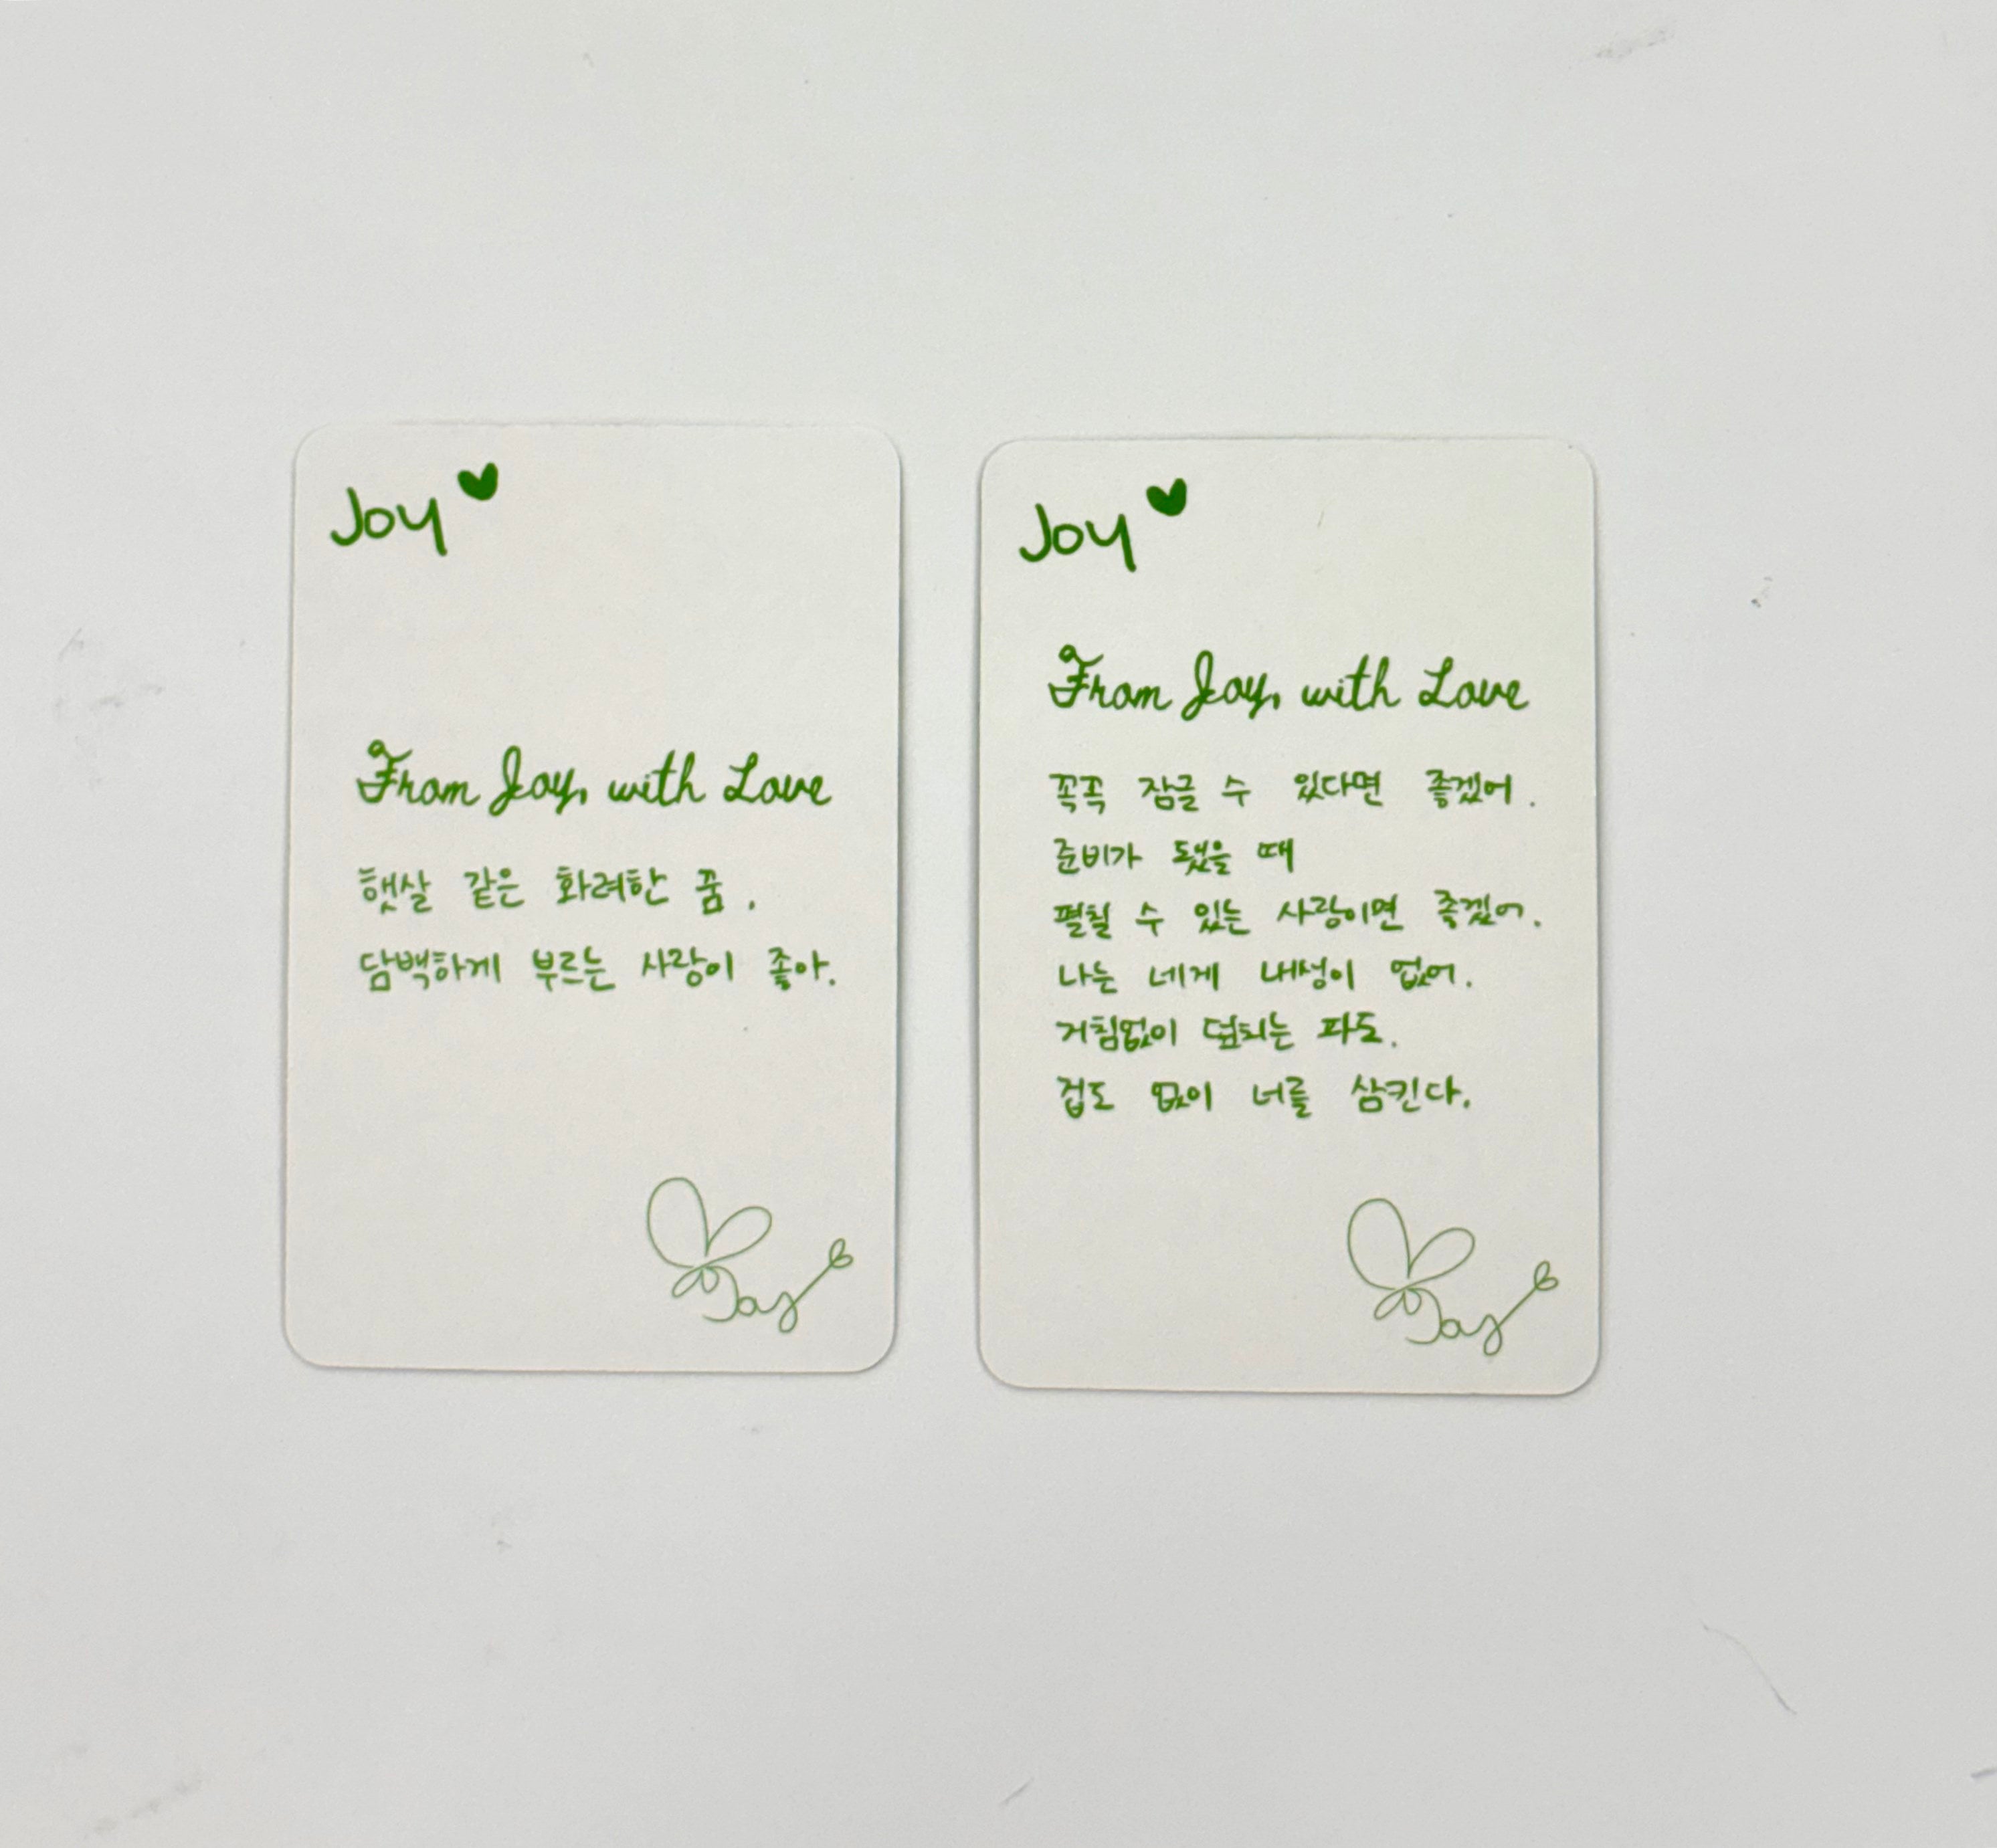 Joy
From Joy, with Love
햇살 같은 화려한 꿈.
담백하게 부르는 사랑이 좋아.
Joy
Joy
From Joy, with Love
꼭꼭 잠글 수 있다면 좋겠어.
준비가 됐을 때
펼칠 수 있는 사랑이면 좋겠어.
나는 네게 내성이 없어.
거침없이 덮치는 파도.
겁도 없이 너를 삼킨다.
Joy